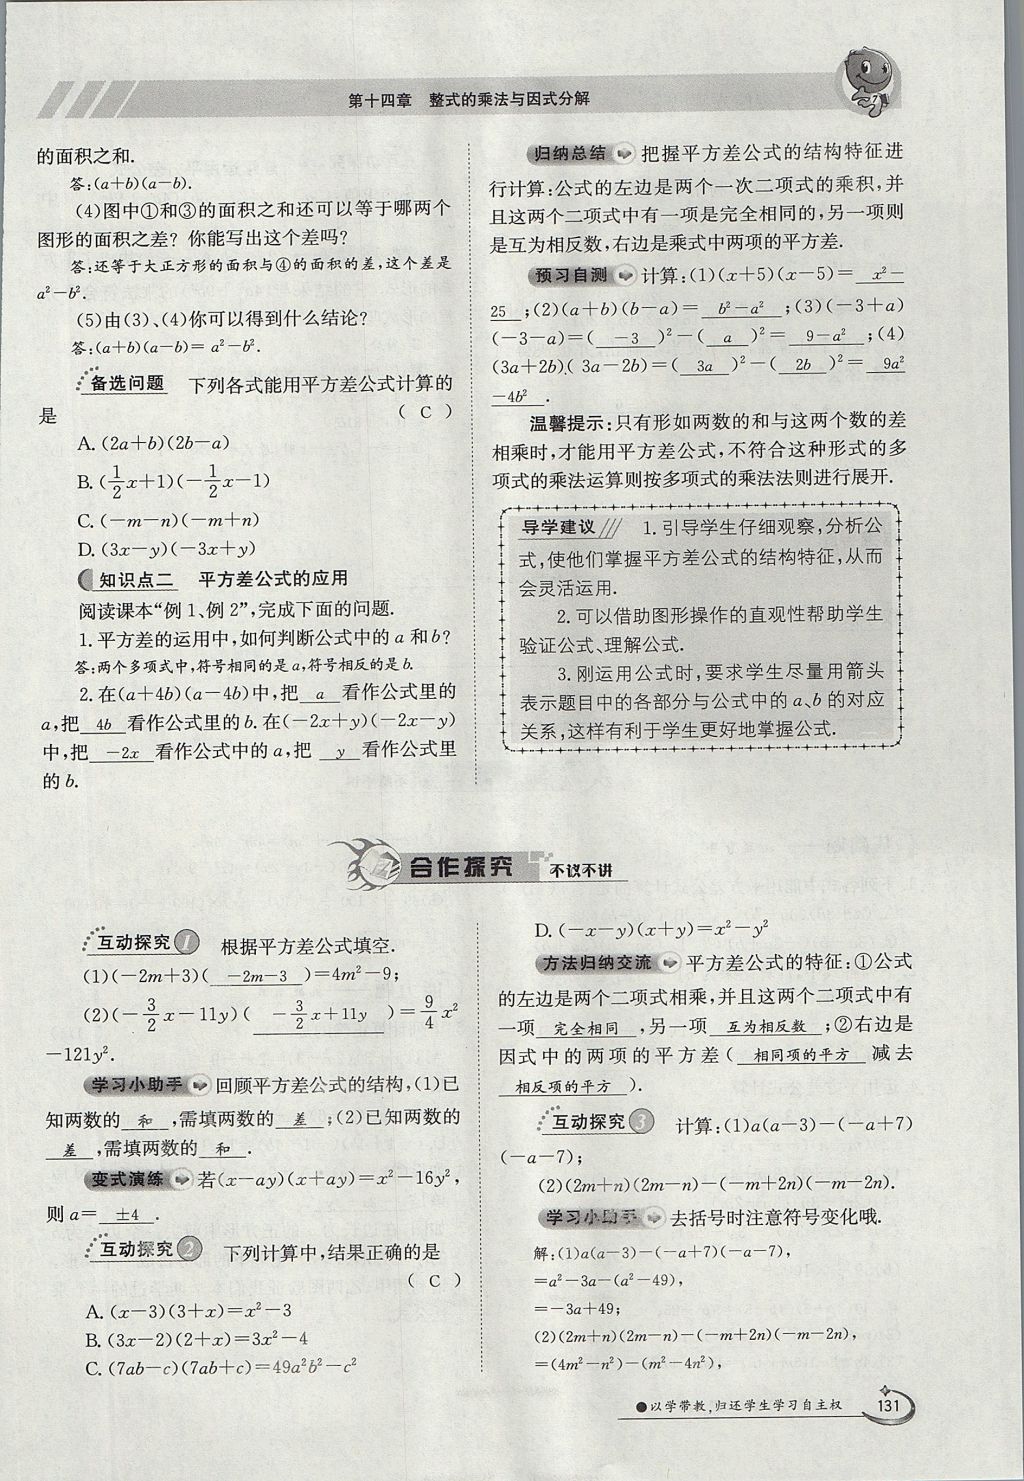 第十四章 整式的乘法与因式分解
的面积之和.
答:(a+b)(a-b).
(4)图中①和③的面积之和还可以等于哪两个
图形的面积之差? 你能写出这个差吗?
答:还等于大正方形的面积与④的面积的差,这个差是
a²-b².
(5)由(3)、(4)你可以得到什么结论?
答:(a+b)(a-b)= a²-b².
备选问题 下列各式能用平方差公式计算的
是 ( C )
A. (2a+b)(2b-a)
B. (1/2x+1)(-1/2x-1)
C. (-m-n)(-m+n)
D. (3x-y)(-3x+y)
知识点二 平方差公式的应用
阅读课本“例1、例2”,完成下面的问题.
1. 平方差的运用中,如何判断公式中的 a 和 b?
答:两个多项式中,符号相同的是 a,符号相反的是 b.
2. 在(a+4b)(a-4b)中,把 a 看作公式里的
a,把 4b 看作公式里的 b. 在(-2x+y)(-2x-y)
中,把 -2x 看作公式中的 a,把 y 看作公式里
的 b.
归纳总结 把握平方差公式的结构特征进
行计算:公式的左边是两个一次二项式的乘积,并
且这两个二项式中有一项是完全相同的,另一项则
是互为相反数,右边是乘式中两项的平方差.
预习自测 计算:(1)(x+5)(x-5)= x²-
25 ;(2)(a+b)(b-a)= b²-a² ;(3)(-3+a)
(-3-a)=( -3 )²-( a )²= 9-a² ;(4)
(3a+2b)( 3a-2b)=( 3a )²-( 2b )²= 9a²
-4b² .
温馨提示:只有形如两数的和与这两个数的差
相乘时,才能用平方差公式,不符合这种形式的多
项式的乘法运算则按多项式的乘法法则进行展开.
导学建议 1. 引导学生仔细观察,分析公
式,使他们掌握平方差公式的结构特征,从而
会灵活运用.
2. 可以借助图形操作的直观性帮助学生
验证公式、理解公式.
3. 刚运用公式时,要求学生尽量用箭头
表示题目中的各部分与公式中的 a、b 的对应
关系,这样有利于学生更好地掌握公式.
合作探究 不议不讲
互动探究1 根据平方差公式填空.
(1)(-2m+3)( -2m-3 )=4m²-9;
(2)(-3/2x-11y)( -3/2x+11y )=9/4x²
-121y².
学习小助手 回顾平方差公式的结构,(1)已
知两数的 和 ,需填两数的 差 ;(2)已知两数的
差 ,需填两数的 和 .
变式演练 若(x-ay)(x+ay)=x²-16y²,
则 a= ±4 .
互动探究2 下列计算中,结果正确的是
( C )
A. (x-3)(3+x)=x²-3
B. (3x-2)(2+x)=3x²-4
C. (7ab-c)(7ab+c)=49a²b²-c²
D. (-x-y)(x+y)=x²-y²
方法归纳交流 平方差公式的特征:①公式
的左边是两个二项式相乘,并且这两个二项式中有
一项 完全相同 ,另一项 互为相反数 ;②右边是
因式中的两项的平方差( 相同项的平方 减去
相反项的平方 ).
互动探究3 计算:(1)a(a-3)-(-a+7)
(-a-7);
(2)(2m+n)(2m-n)-(-m+2n)(-m-2n).
学习小助手 去括号时注意符号变化哦.
解:(1)a(a-3)-(-a+7)(-a-7),
=a²-3a-(a²-49),
=-3a+49;
(2)(2m+n)(2m-n)-(-m+2n)(-m-2n),
=(4m²-n²)-(m²-4n²),
●以学带教,归还学生学习自主权 131